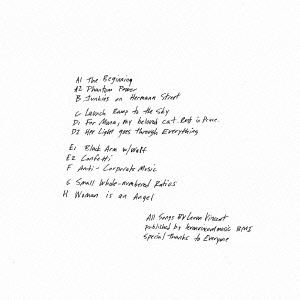 A1 The Beginning
A2 Phantom Power
B Junkies on Hermann Street
C Launch Ramp to the Sky
D1 For Manna, my beloved cat. Rest in Peace.
D2 Her Light goes through Everything
E1 Black Arm w/Wolf
E2 Confetti
F Anti-Corporate Music
G Small Whole-numbered Ratios
H Woman is an Angel
All Songs BY Loren Vincent
published by music BMI
Special Thanks to Everyone